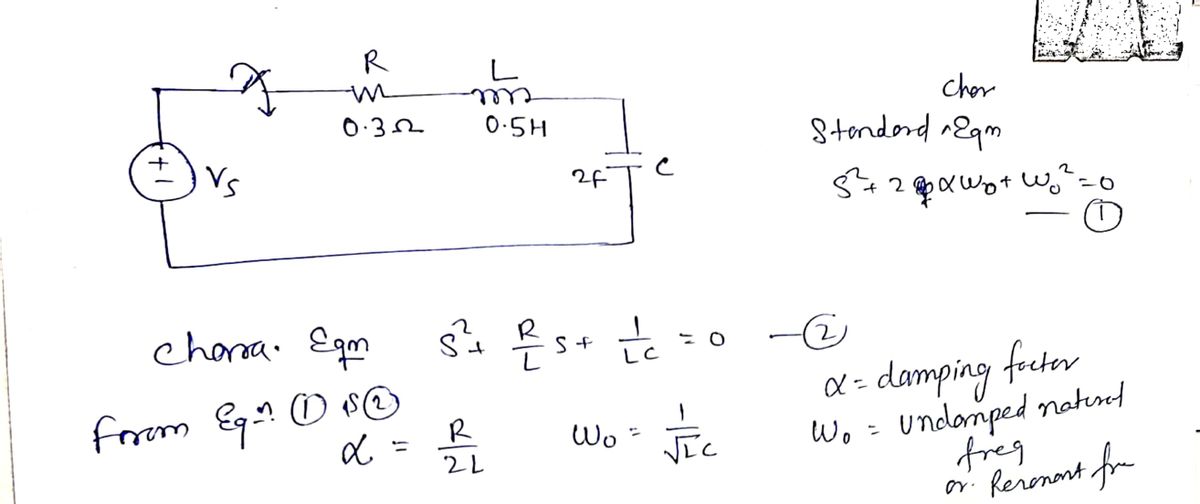 R
L
0.3Ω
0.5H
+
-
Vs
2F
C
Char
Standard ^Eqn
S² + 2αω₀ + ω₀² = 0
— ①
Chara. Eqn S² + R/L S + 1/LC = 0 — ②
from Eqn ① & ②
α = R/2L ω₀ = 1/√LC
α = damping factor
ω₀ = Undamped natural
freq
or. Resonant fre